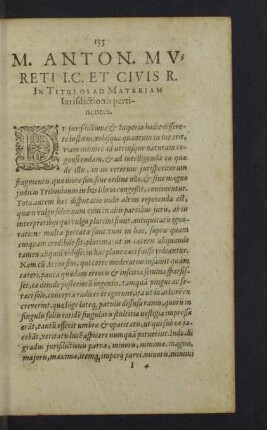 135
M. ANTON. MV
RETI I.C. ET CIVIS R.
IN TITVLOS AD MATERIAM
Iurisdictionis perti-
nentes.
DE jurisdictione & Imperio hodie dissere-
re institui, vobisque, quantum in me erit,
viam munire ad utriusque naturam co-
gnoscendam, & ad intelligenda ea quæ
de illis, in iis veterum jurisconsultorum
fragmentis, quæ more suo, sine ordine ullo, & sine magno
judicio Tribonianus in hos libros congessit, continentur.
Tota autem hæc disputatio nihil altius repetenda est,
quam vulgo solet. nam cum in aliis partibus juris, ab in-
terpretibus qui vulgo plurimi sunt, antiquitatis igno-
ratione multa peccata sunt tum in hac, supra quam
cuiquam credibile sit, plurima: ut in cæteris aliquando
tamen aliquid vidisse, in hac plane cæci fuisse videantur.
Nam cù Accursius, qui certe moderatior insaniit quàm
cæteri, pauca quædam erroris & inscitiæ semina sparsis-
set, ea deinde posteriorū ingeniis, tamquā pingue ac fe-
rax solū, concepta radices ita egerunt, ita ut in arbores ex-
creverint, quę hîgo latęq, patulis diffusæ ramis, quorū in
singulis foliis totidē singularis stultitiæ vestigia impressa
erāt, tantū effecit umbræ & opacitatis, ut quisub ea ja-
cebāt, veritatis lucē aspicere numquā potuerint. Inde illi
gradus jurisdictionis parvæ, minoris, minimæ. magnæ,
majoris, maximæ, itemq, imperii parvi, minoris, minimi
I 4